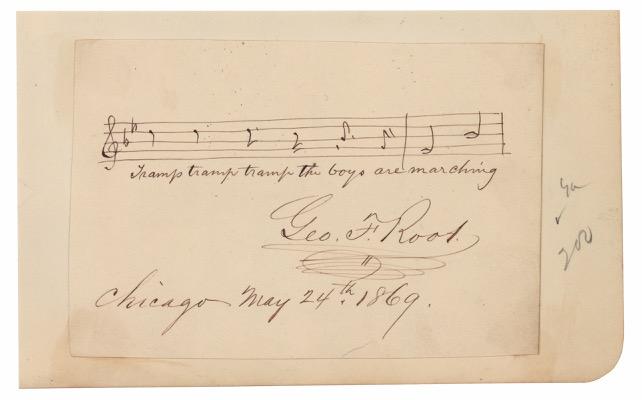 Tramp tramp tramp the boys are marching
Geo. F. Root.
Chicago May 24th. 1869.
200